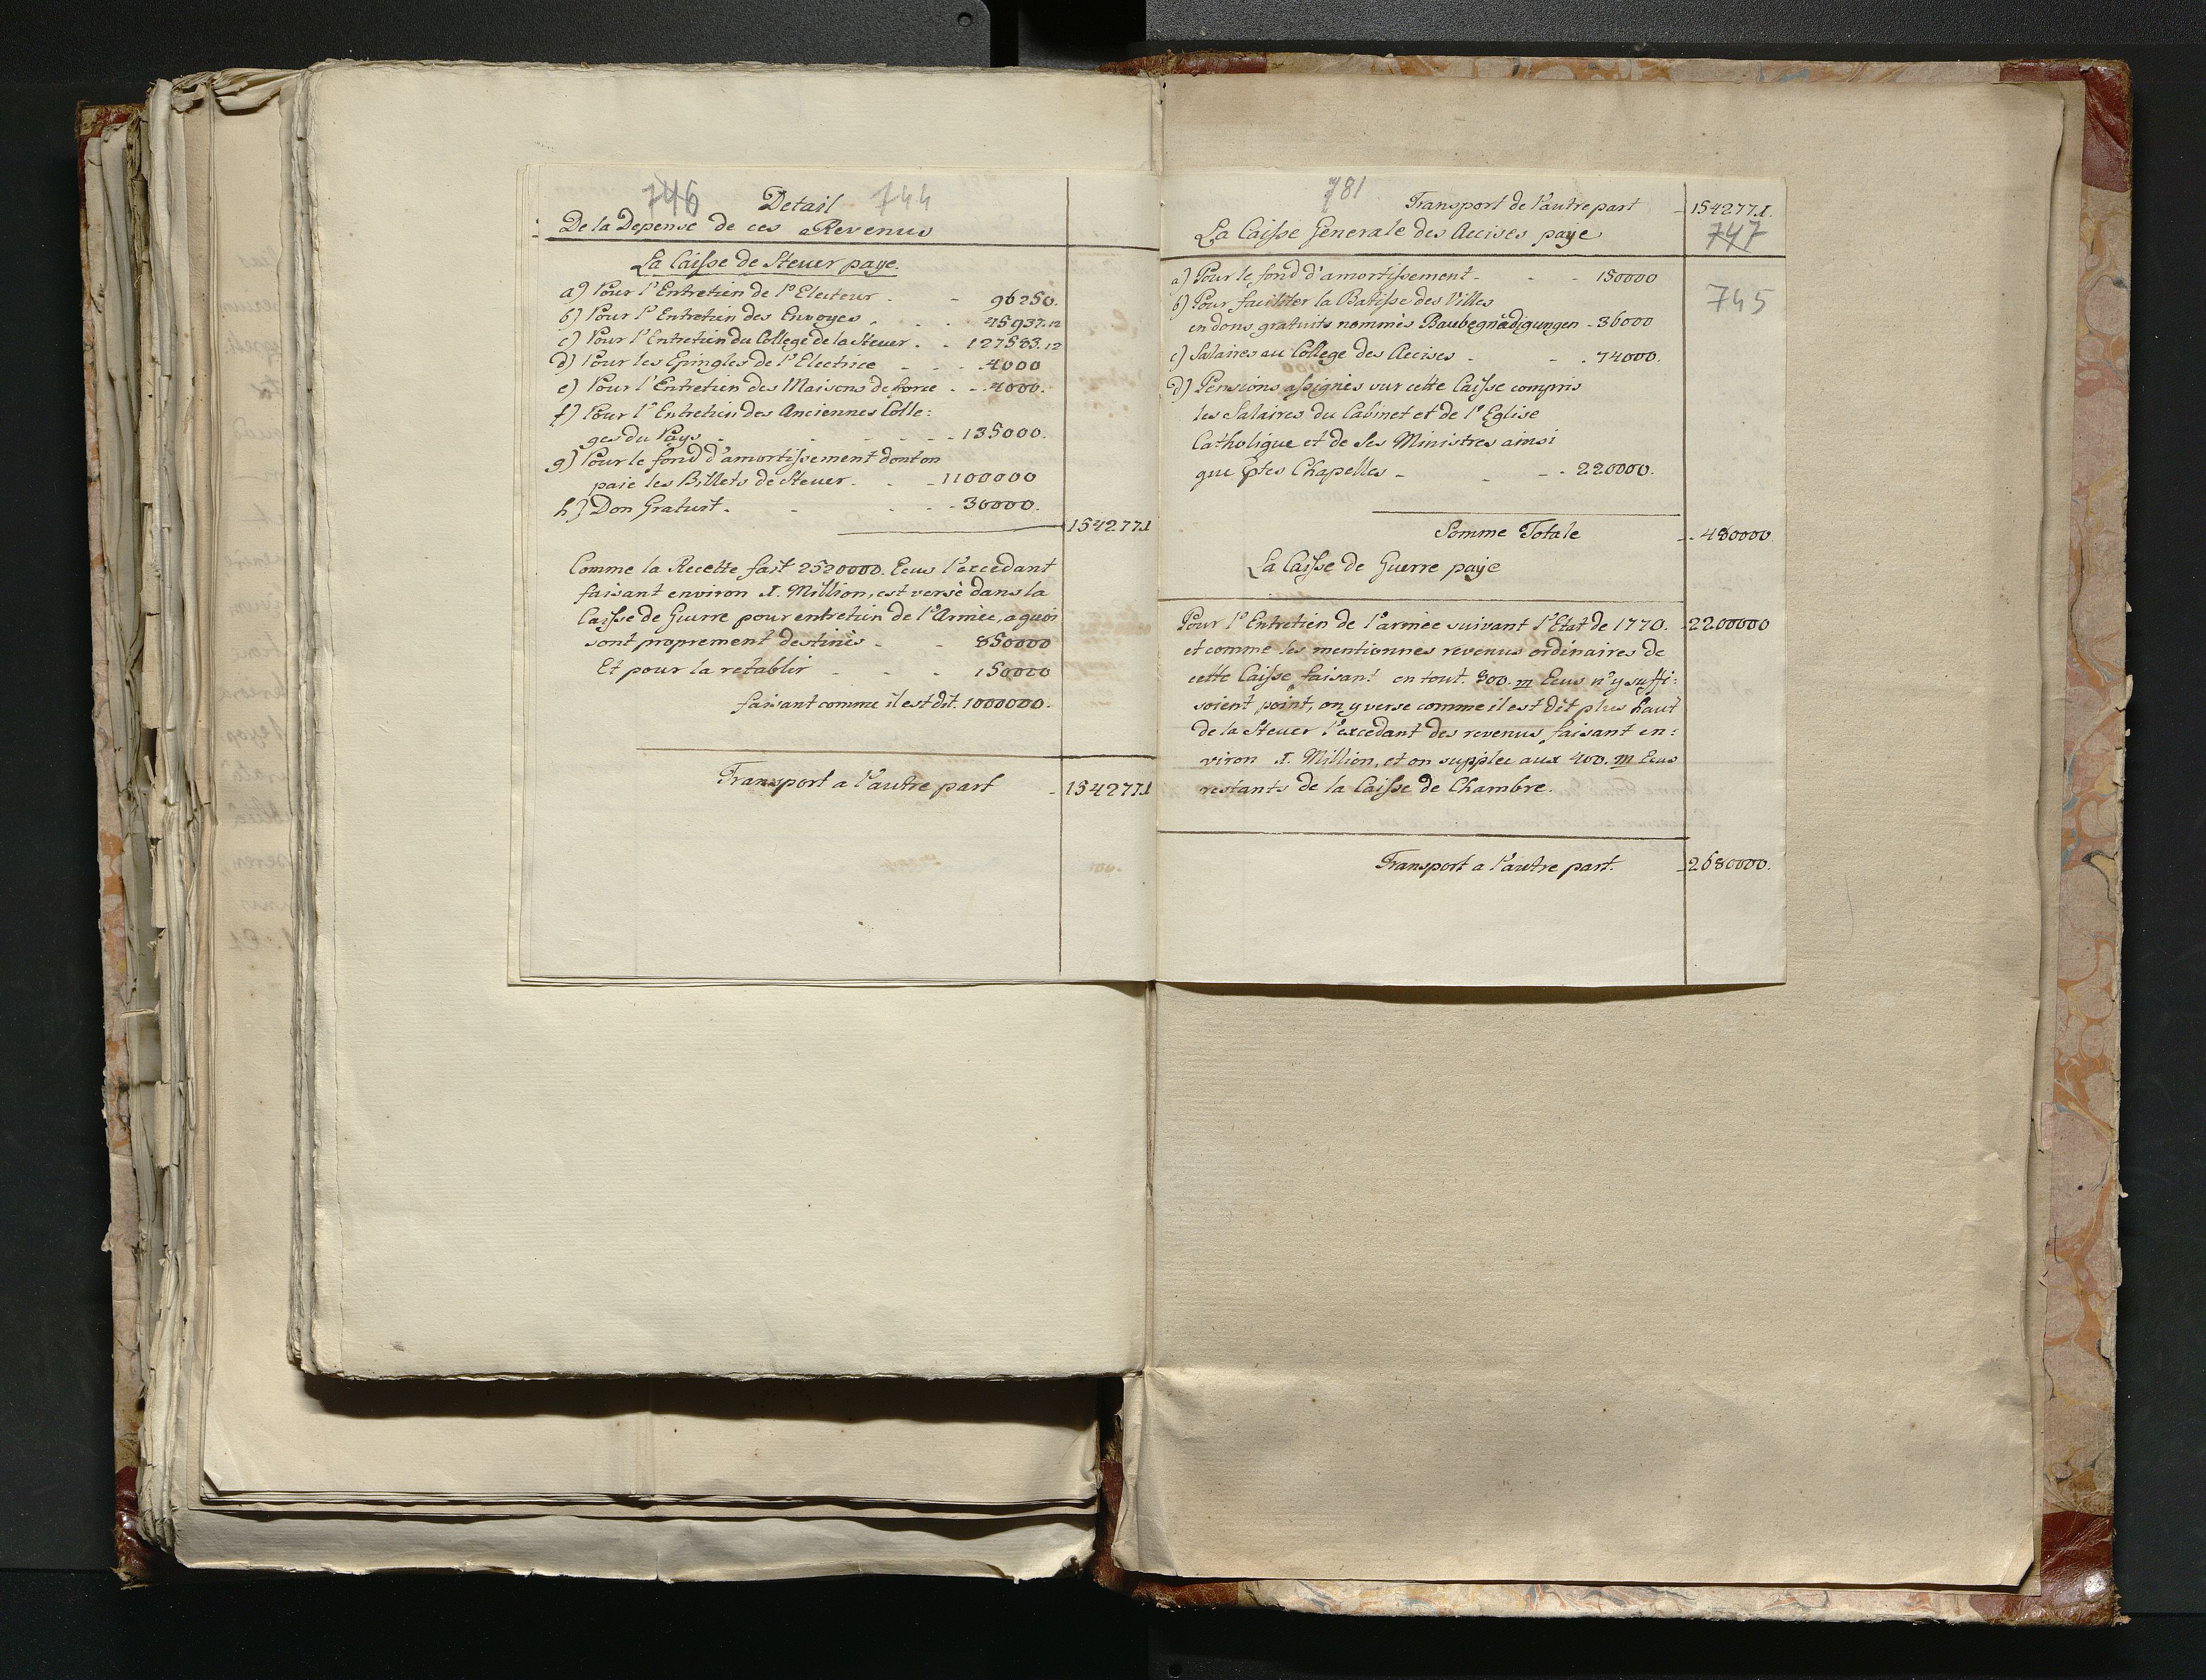 746 744
Detail
De la Depense de ces Revenus
La Caisse de Steuer paye.
a) Pour l'Entretien de l'Electeur - 96250.
b) Pour l'Entretien des Envoyes - 45937.12
c) Pour l'Entretien du College de la Steuer - 127583.12
d) Pour les Epingles de l'Electrice - 4000
e) Pour l'Entretien des Maisons de force - 4000.
f) Pour l'Entretien des Anciennes Colle:
ges du Pays - 135000.
g) Pour le fond d'amortissement dont on
paie les Billets de Steuer - 1100000
h) Don Gratuit - 30000.
1542771
Comme la Recette fait 2520000. Ecus l'excedant
faisant environ 1. Million, est versè dans la
Caisse de Guerre pour entretien de l'Armèe, a quoi
sont proprement destinès - 850000
Et pour la retablir - 150000
faisant comme il est dit. 1000000.
Transport a l'autre part - 1542771
781
Transport de l'autre part - 1542771.
747
La Caisse Generale des Accises paye
745
a) Pour le fond d'amortissement - 150000
b) Pour faciliter la Batisse des Villes
en dons gratuits nommès Baubegnädigungen - 36000
c) Salaires au College des Accises - 74000.
d) Pensions assignès sur cette Caisse compris
les Salaires du Cabinet et de l'Eglise
Catholique et de ses Ministres ainsi
que des Chapelles - 220000.
Somme Totale - 480000
La Caisse de Guerre paye
Pour l'Entretien de l'armèe suivant l'Etat de 1770. - 2200000
et comme les mentionnes revenus ordinaires de
cette Caisse faisant en tout. 800. m Ecus n'y suffi:
soient point, on y verse comme il est dit plus haut
de la Steuer l'excedant des revenus faisant en:
viron 1. Million, et on supplee aux 400. m Ecus
restants de la Caisse de Chambre.
Transport a l'autre part. - 2680000.